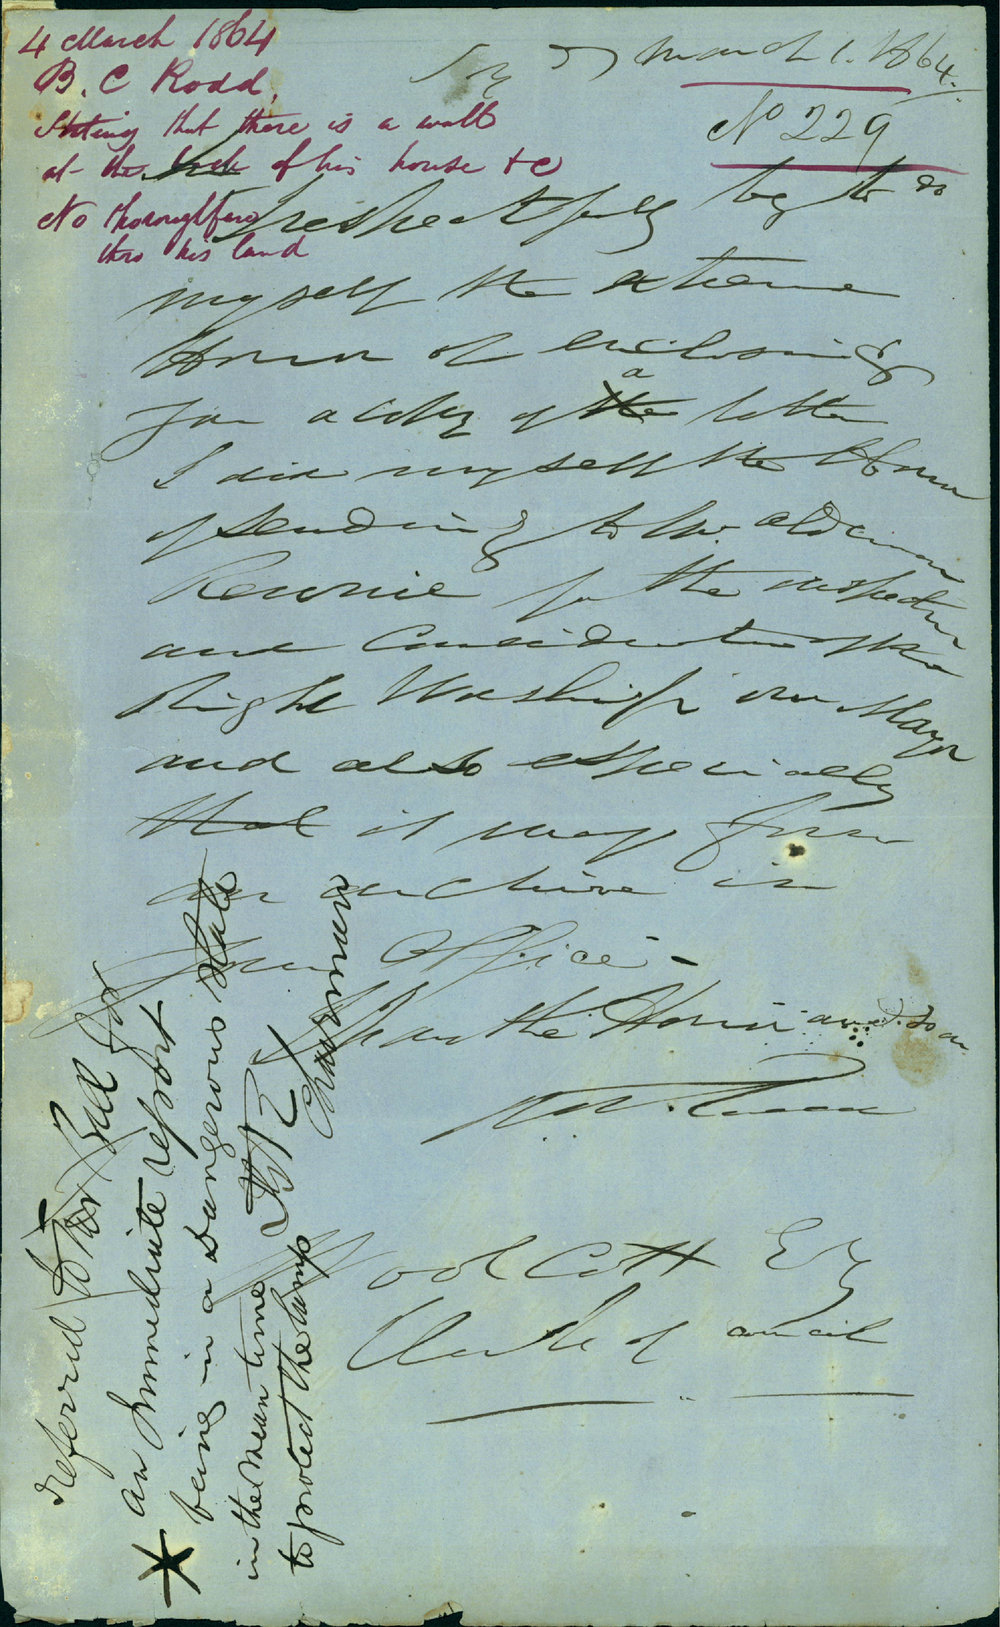 4 March 1864
B. C Rodd,
Stating that there is a wall
at the back of his house &c
No thoroughfare
thro his land
March 1. 1864.
No 229
I respectfully beg to do
myself the extreme
Honor of enclosing
you a copy of the a letter
I did myself the Honor
of sending to Mr. Alderman
Rennie for the inspection
and consideration of the
Right Worshipful our Mayor
and also especially
that it may form
an archive in
your Office -
I have the Honor and so on
Woolcott Esq
Clerk of Council
Referred to Mr Bell for
an immediate report
* being in a dangerous state
in the mean time
to protect the lamp
Chairman